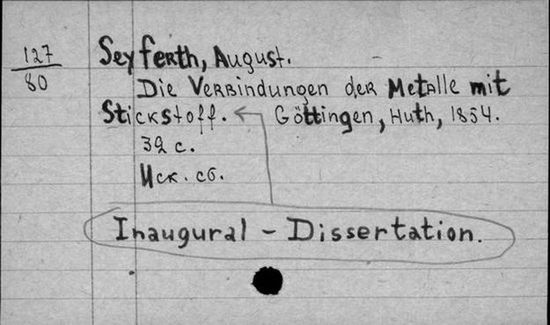 127
80
Seyferth, August.
Die Verbindungen der Metalle mit
Stickstoff. Göttingen, Huth, 1854.
32 с.
Иск. сб.
Inaugural - Dissertation.